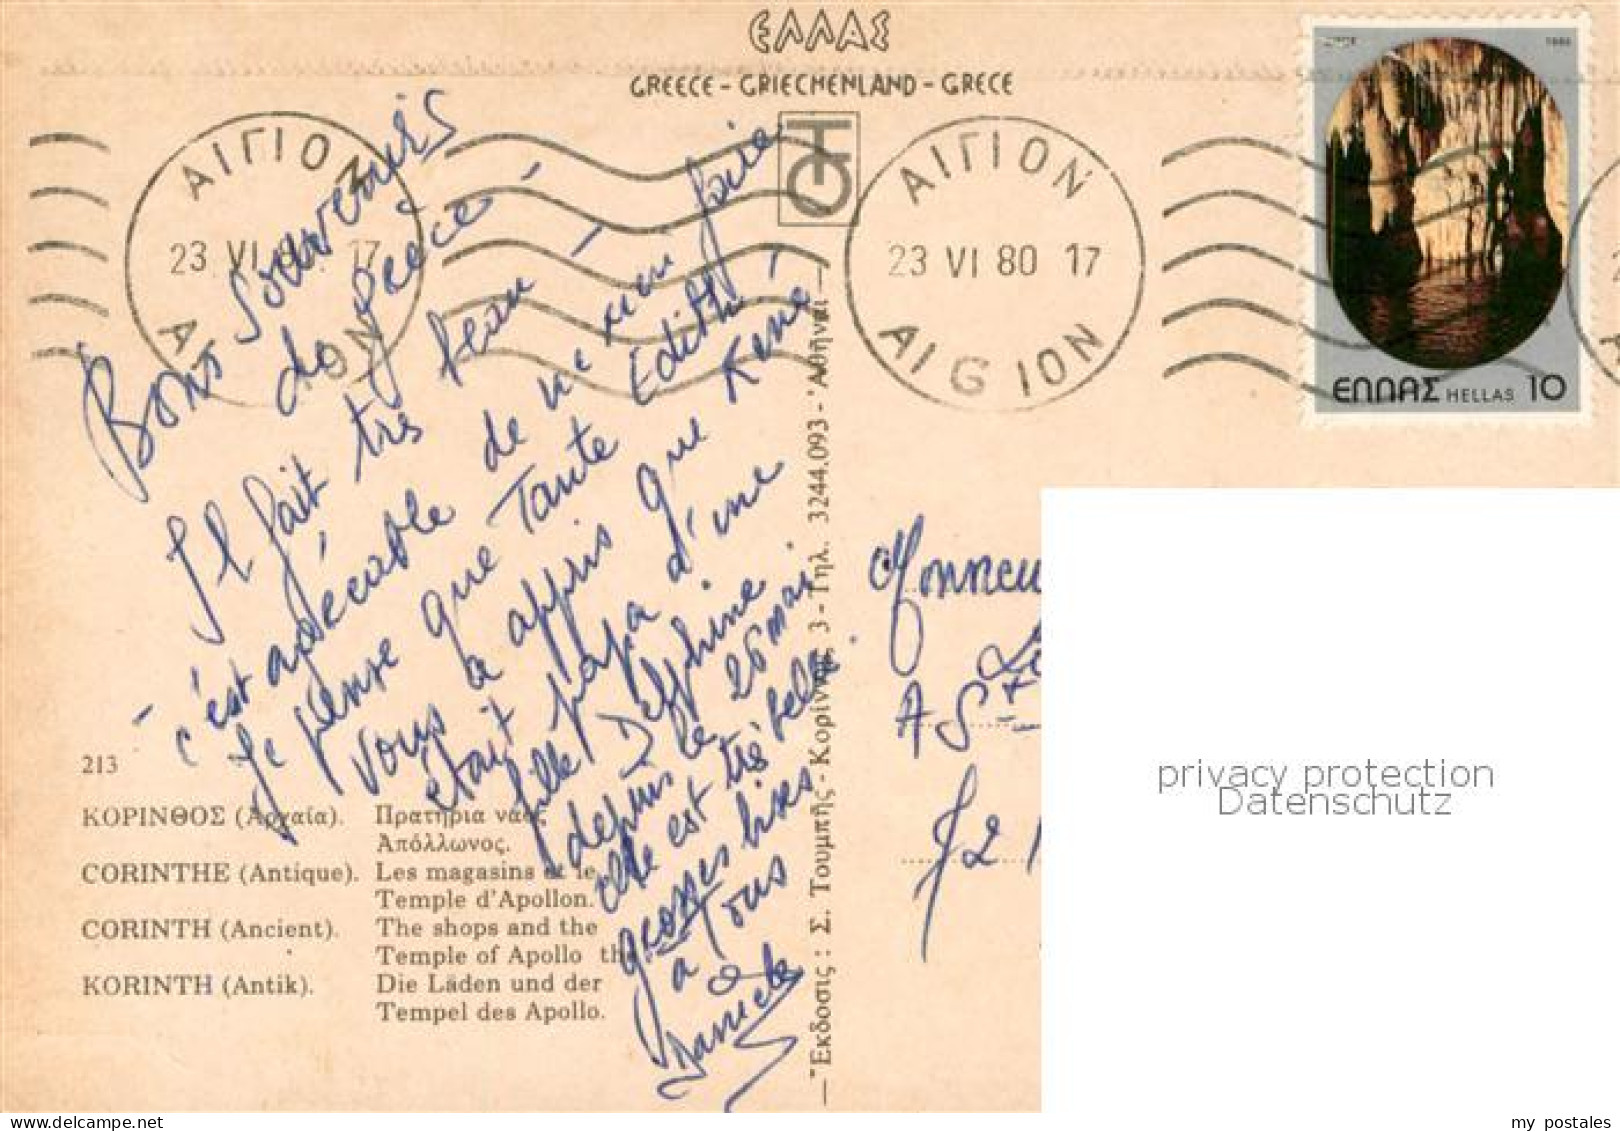 ΕΛΛΑΣ
GREECE - GRIECHENLAND - GRECE
ΑΙΓΙΟΝ
23 VI 80 17
ΑΙΓΙΟΝ
23 VI 80 17
AIGION
ΕΛΛΑΣ HELLAS 10
Bons souvenirs
de grèce
Il fait très beau
c'est agréable de ne rien faire
Je pense que Tante Edith
vous a appris que René
était papa d'une
fille Delphine
depuis le 26 mai
elle est très belle.
grosses bises
a Tous
Daniele
213
ΚΟΡΙΝΘΟΣ (Αρχαία). Πρατήρια ναός
Απόλλωνος.
CORINTHE (Antique). Les magasins et le
Temple d'Apollon.
CORINTH (Ancient). The shops and the
Temple of Apollo the
KORINTH (Antik). Die Läden und der
Tempel des Apollo.
Ἔκδοσις : Σ. Τουμπῆς - Κορίννης 3 - Τηλ. 3244.093 - Ἀθῆναι
privacy protection
Datenschutz
my_postales